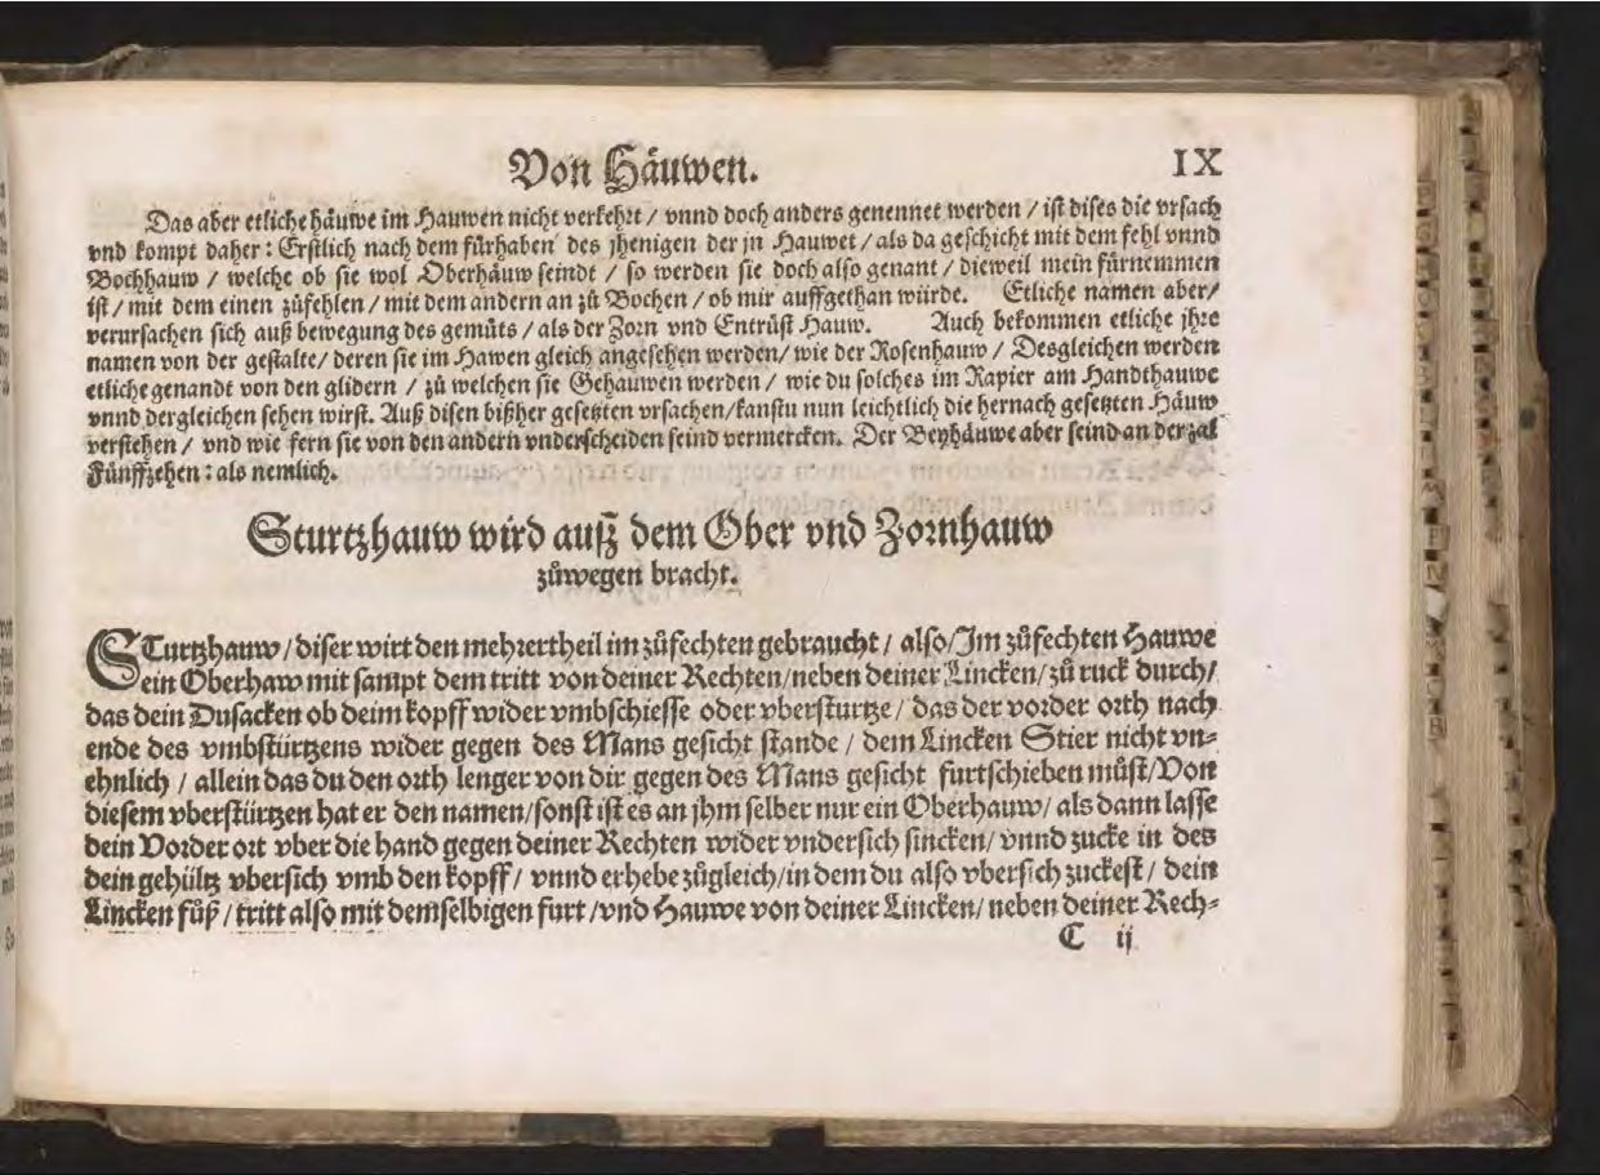 Von Häuwen.
IX
Das aber etliche häuwe im Hauwen nicht verkehrt / vnnd doch anders genennet werden / ist dises die vrsach
vnd kompt daher: Erstlich nach dem fürhaben des jhenigen der jn Hauwet / als da geschicht mit dem fehl vnnd
Bochhauw / welche ob sie wol Oberhäuw seindt / so werden sie doch also genant / dieweil mein fürnemmen
ist / mit dem einen zůfehlen / mit dem andern an zů Bochen / ob mir auffgethan würde. Etliche namen aber/
verursachen sich auß bewegung des gemůts / als der Zorn vnd Entrüst Hauw. Auch bekommen etliche jhre
namen von der gestalte/ deren sie im Hawen gleich angesehen werden/ wie der Rosenhauw / Desgleichen werden
etliche genandt von den glidern / zů welchen sie Gehauwen werden / wie du solches im Rapier am Handthauwe
vnnd dergleichen sehen wirst. Auß disen bißher gesetzten vrsachen/kanstu nun leichtlich die hernach gesetzten Häuw
verstehen / vnd wie fern sie von den andern vnderscheiden seind vermercken. Der Beyhäuwe aber seind an der zal
Fünffzehen: als nemlich.
Sturtzhauw wird auß dem Ober vnd Zornhauw
zůwegen bracht.
STurtzhauw / diser wirt den mehrertheil im zůfechten gebraucht / also/Im zůfechten Hauwe
ein Oberhaw mit sampt dem tritt von deiner Rechten/neben deiner Lincken/zů ruck durch/
das dein Dusacken ob deim kopff wider vmbschiesse oder vbersturtze / das der vorder orth nach
ende des vmbstürtzens wider gegen des Mans gesicht stande / dem Lincken Stier nicht vn-
ehnlich / allein das du den orth lenger von dir gegen des Mans gesicht furtschieben můst/Von
diesem vberstürtzen hat er den namen/sonst ist es an jhm selber nur ein Oberhauw/ als dann lasse
dein Vorder ort vber die hand gegen deiner Rechten wider vndersich sincken/ vnnd zucke in des
dein gehültz vbersich vmb den kopff/ vnnd erhebe zůgleich/in dem du also vbersich zuckest / dein
Lincken fůß / tritt also mit demselbigen furt /vnd Hauwe von deiner Lincken/ neben deiner Rech-
C ij